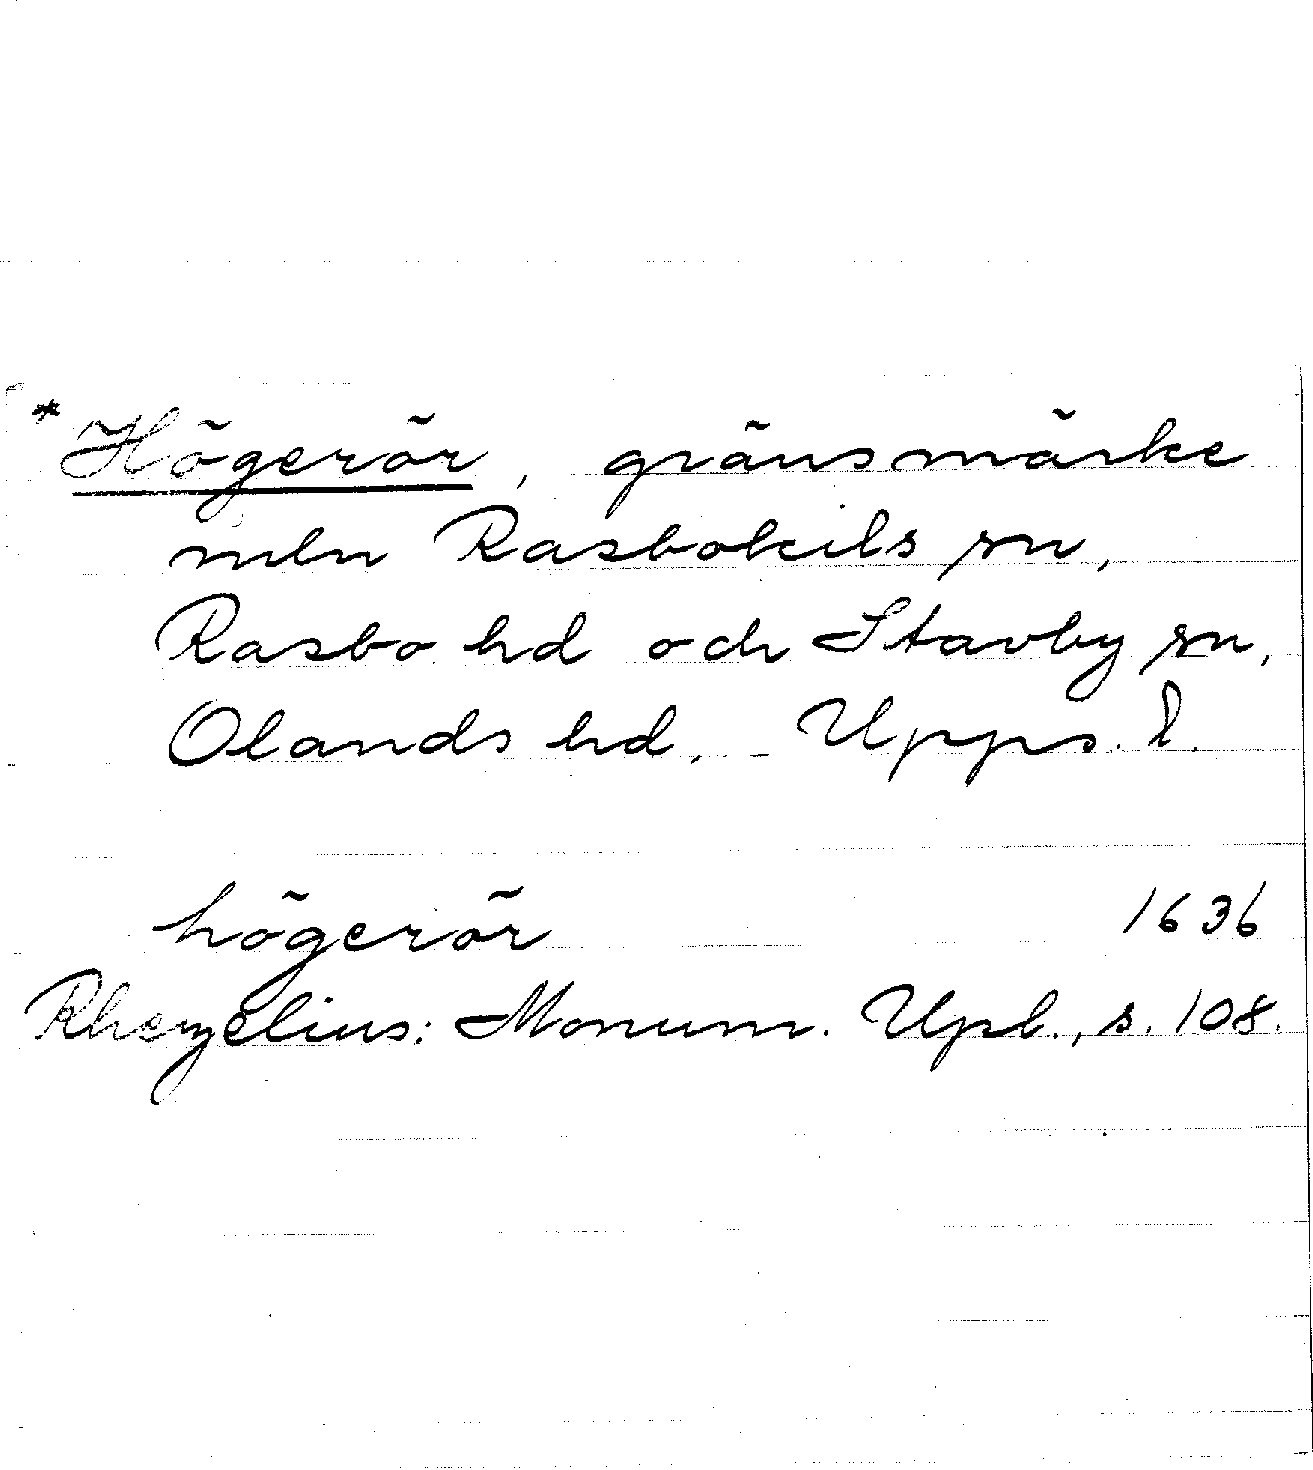 * Högerör, gränsmärke
mln Rasbokils sn,
Rasbo hd och Stavby sn,
Olands hd, Upps. l.
högerör 1636
Rhezelius: Monum. Upl., s. 108.